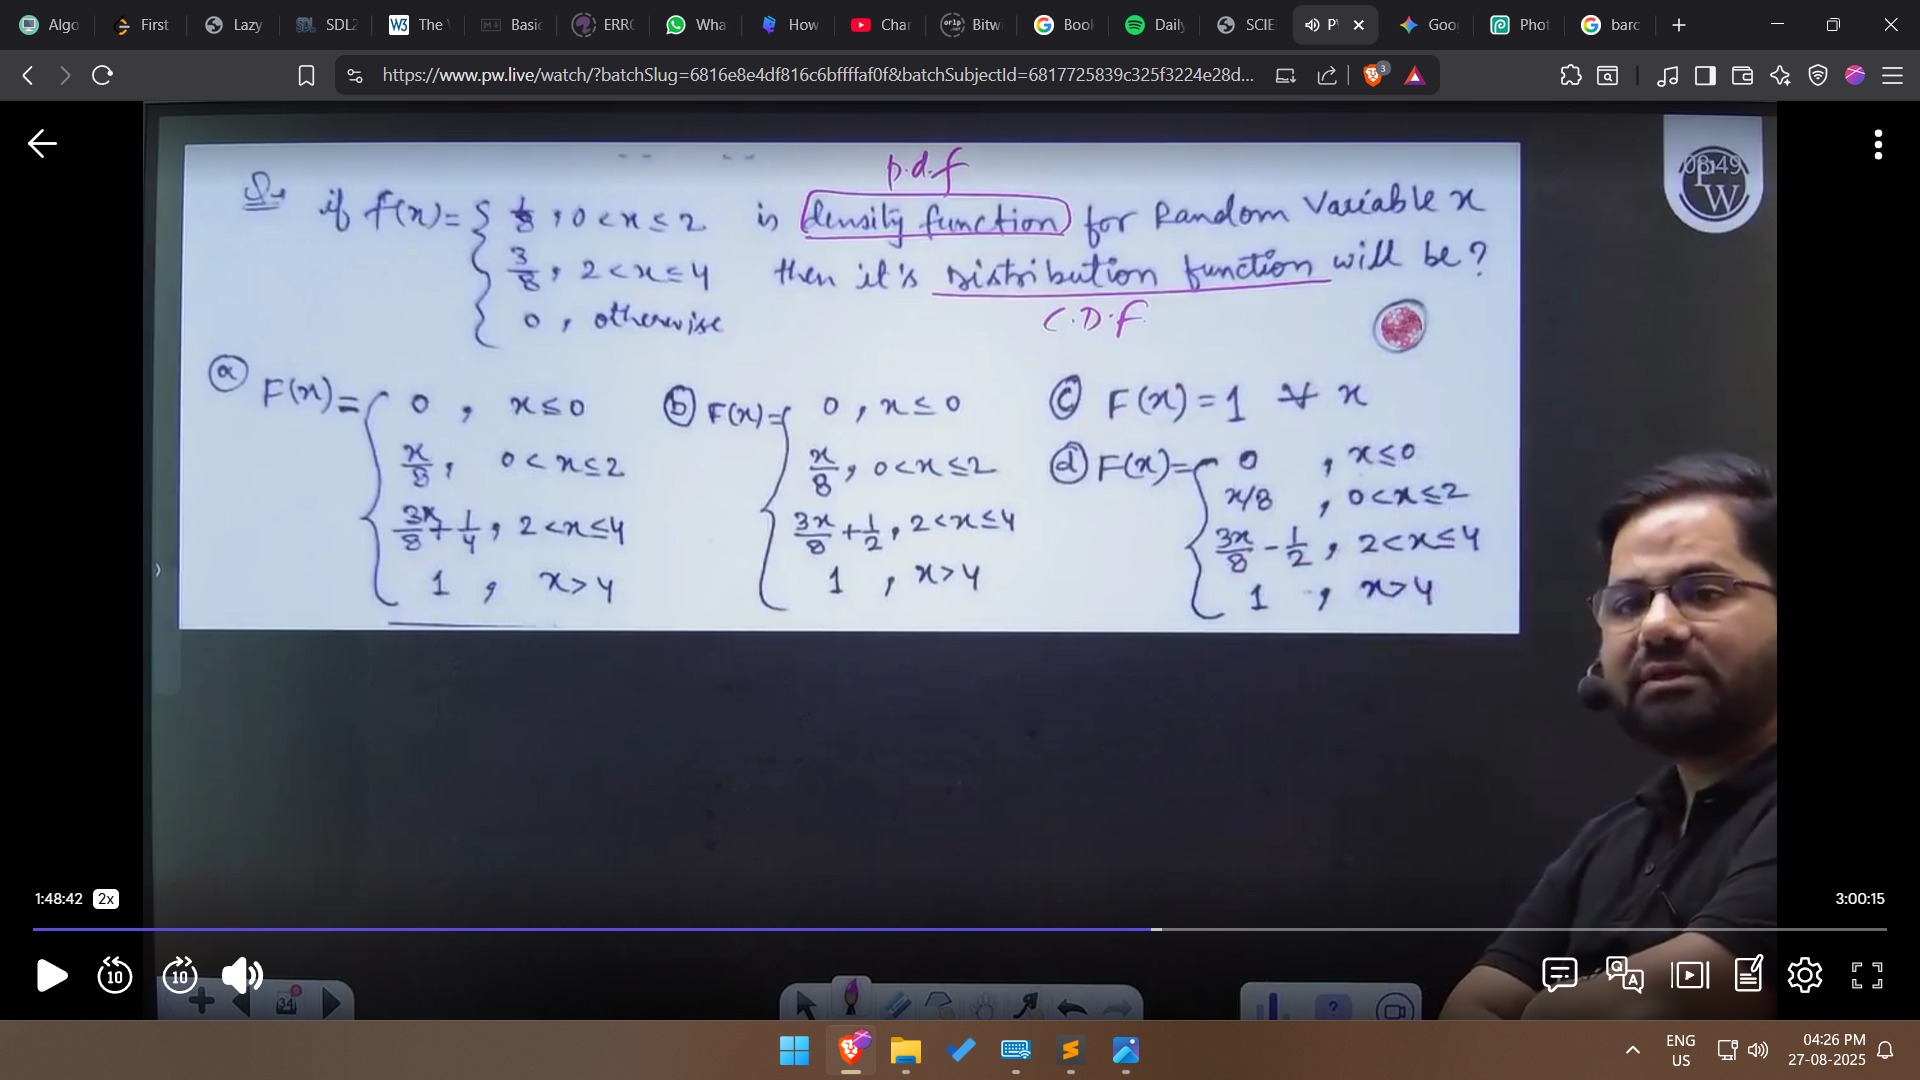 Algo
First
Lazy
SDL2
The
Basic
ERRO
Wha
How
Char
Bitwi
Book
Daily
SCIE
P
Goog
Phot
barc
https://www.pw.live/watch/?batchSlug=6816e8e4df816c6bffffaf0f&batchSubjectId=6817725839c325f3224e28d...
3
08:49
PW
p.d.f
Q. if f(x) = { 1/8 , 0 < x ≤ 2 is density function for Random Variable x
3/8 , 2 < x ≤ 4 then it's Distribution function will be?
0 , otherwise
C.D.F.
(a) F(x) = { 0 , x ≤ 0
x/8 , 0 < x ≤ 2
3x/8 + 1/4 , 2 < x ≤ 4
1 , x > 4
(b) F(x) = { 0 , x ≤ 0
x/8 , 0 < x ≤ 2
3x/8 + 1/2 , 2 < x ≤ 4
1 , x > 4
(c) F(x) = 1 ∀ x
(d) F(x) = { 0 , x ≤ 0
x/8 , 0 < x ≤ 2
3x/8 - 1/2 , 2 < x ≤ 4
1 , x > 4
1:48:42 2x
3:00:15
10
10
34
ENG
US
04:26 PM
27-08-2025